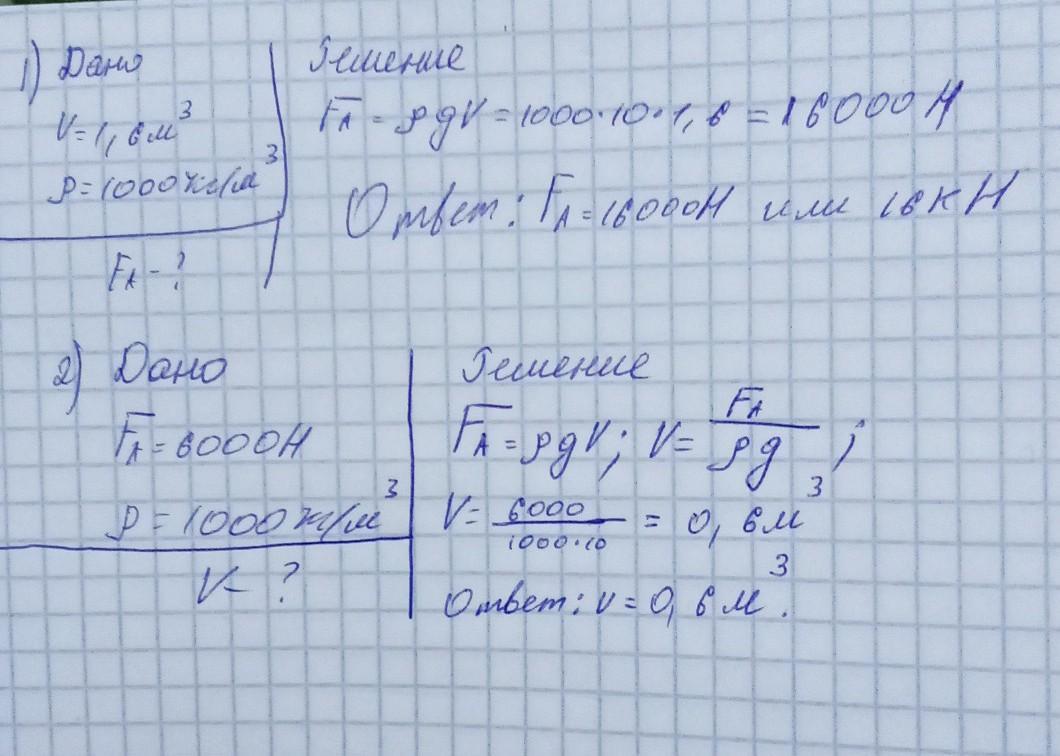 1) Дано
V=1,6м³
ρ=1000кг/м³
Fᴀ-?
Решение
Fᴀ=ρgV=1000·10·1,6=16000Н
Ответ: Fᴀ=16000Н или 16кН
2) Дано
Fᴀ=6000Н
ρ=1000кг/м³
V-?
Решение
Fᴀ=ρgV; V=Fᴀ/ρg;
V=6000/1000·10=0,6м³
Ответ: V=0,6м³.